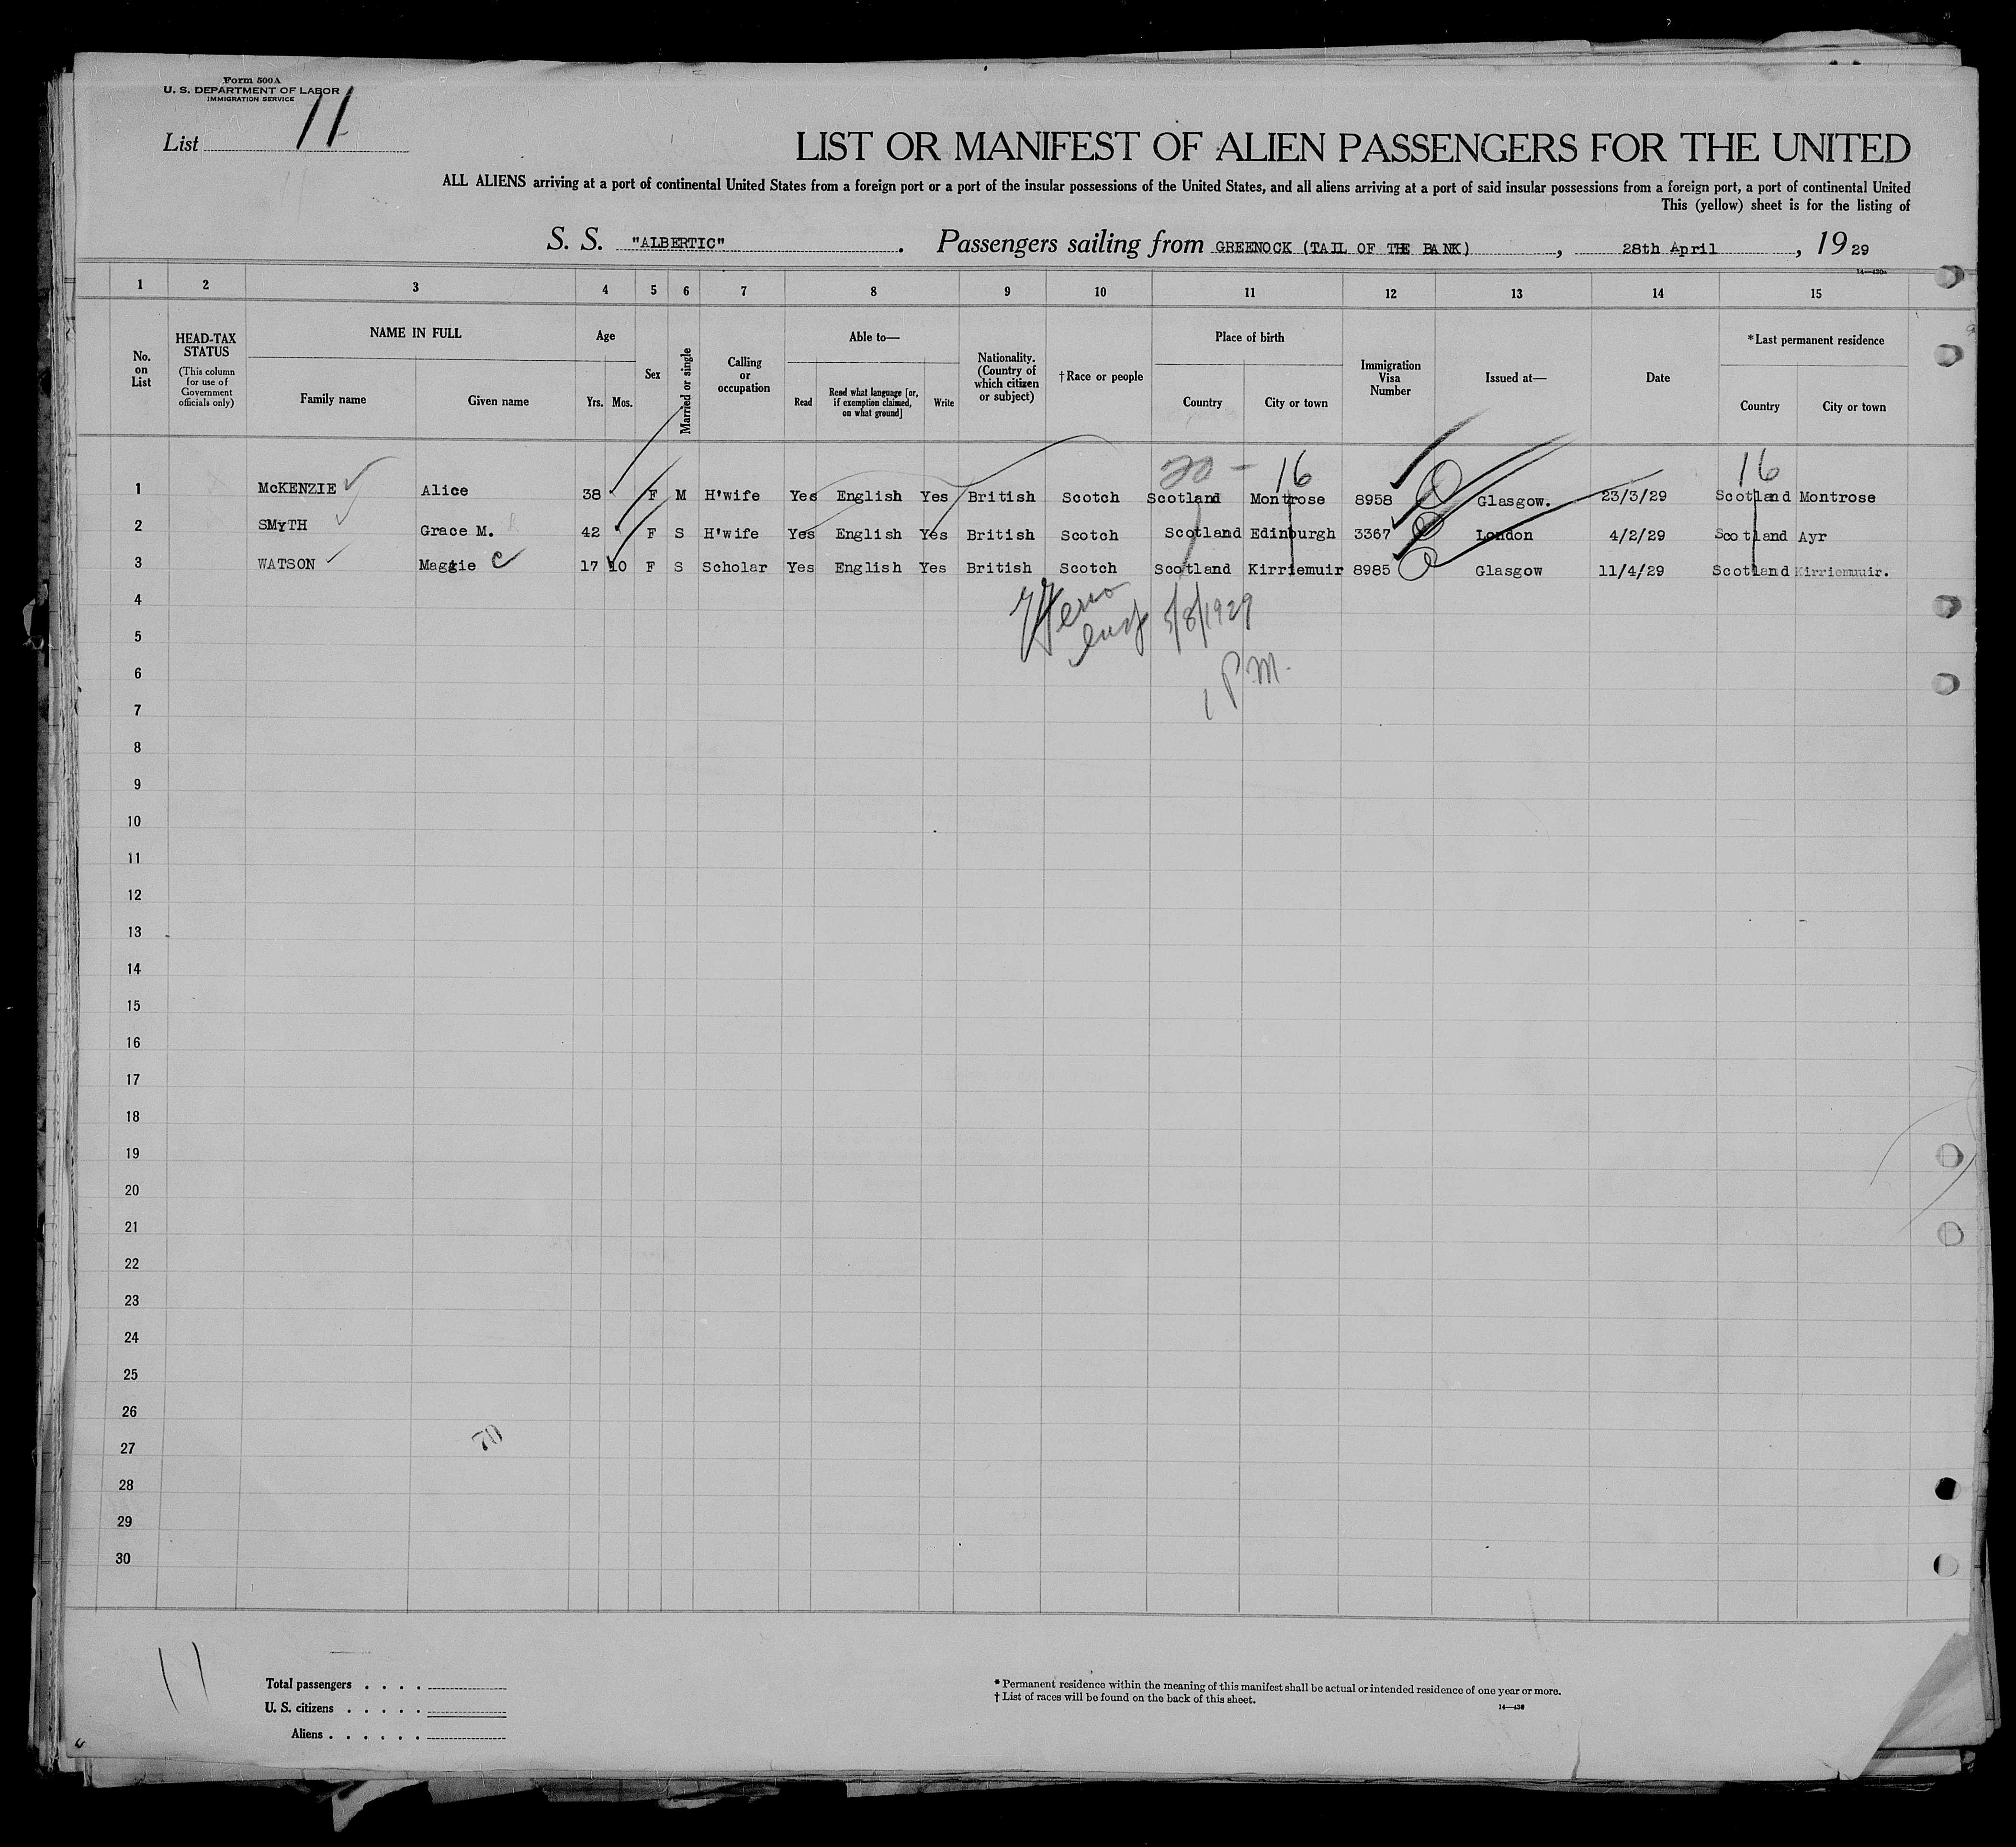 Form 500A
U. S. DEPARTMENT OF LABOR
IMMIGRATION SERVICE
List 11
LIST OR MANIFEST OF ALIEN PASSENGERS FOR THE UNITED
ALL ALIENS arriving at a port of continental United States from a foreign port or a port of the insular possessions of the United States, and all aliens arriving at a port of said insular possessions from a foreign port, a port of continental United
This (yellow) sheet is for the listing of
S. S. "ALBERTIC". Passengers sailing from GREENOCK (TAIL OF THE BANK), 28th April, 1929
1 2 3 4 5 6 7 8 9 10 11 12 13 14 15
No. on List
HEAD-TAX STATUS
(This column for use of Government officials only)
NAME IN FULL
Family name Given name
Age
Yrs. Mos.
Sex
Married or single
Calling or occupation
Able to—
Read Read what language [or, if exemption claimed, on what ground] Write
Nationality. (Country of which citizen or subject)
†Race or people
Place of birth
Country City or town
Immigration Visa Number
Issued at—
Date
*Last permanent residence
Country City or town
20 - 16 16
1 McKENZIE Alice 38 F M H'wife Yes English Yes British Scotch Scotland Montrose 8958 Glasgow. 23/3/29 Scotland Montrose
2 SMyTH Grace M. 42 F S H'wife Yes English Yes British Scotch Scotland Edinburgh 3367 London 4/2/29 Scotland Ayr
3 WATSON Maggie C 17 10 F S Scholar Yes English Yes British Scotch Scotland Kirriemuir 8985 Glasgow 11/4/29 Scotland Kirriemuuir.
4
5
5/8/1929
6
1 P.M.
7
8
9
10
11
12
13
14
15
16
17
18
19
20
21
22
23
24
25
26
27
70
28
29
30
11
Total passengers . . . .
U. S. citizens . . . . .
Aliens . . . . . .
* Permanent residence within the meaning of this manifest shall be actual or intended residence of one year or more.
† List of races will be found on the back of this sheet.
14—430